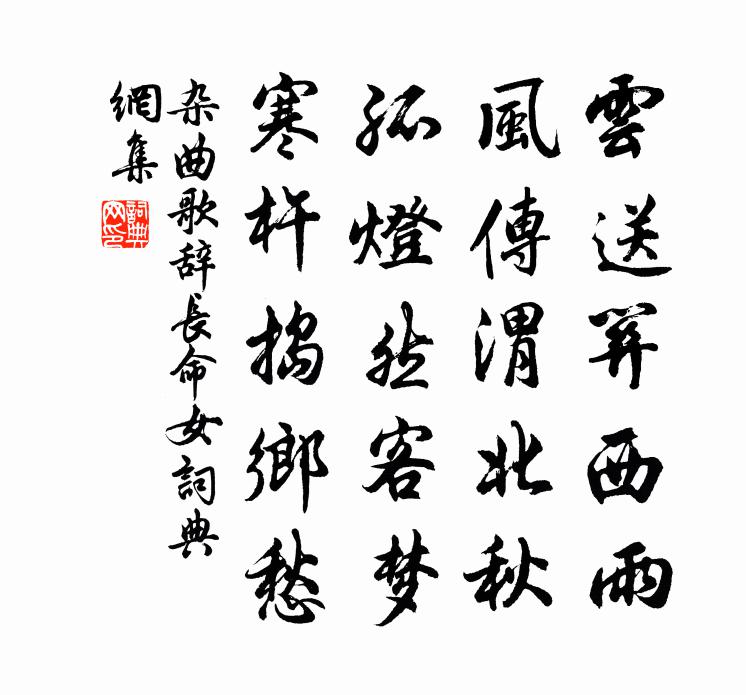 雲送關西雨
風傳渭北秋
孤燈然客梦
寒杵搗鄉愁
杂曲歌辞長命女詞典
網集
詞典
网印